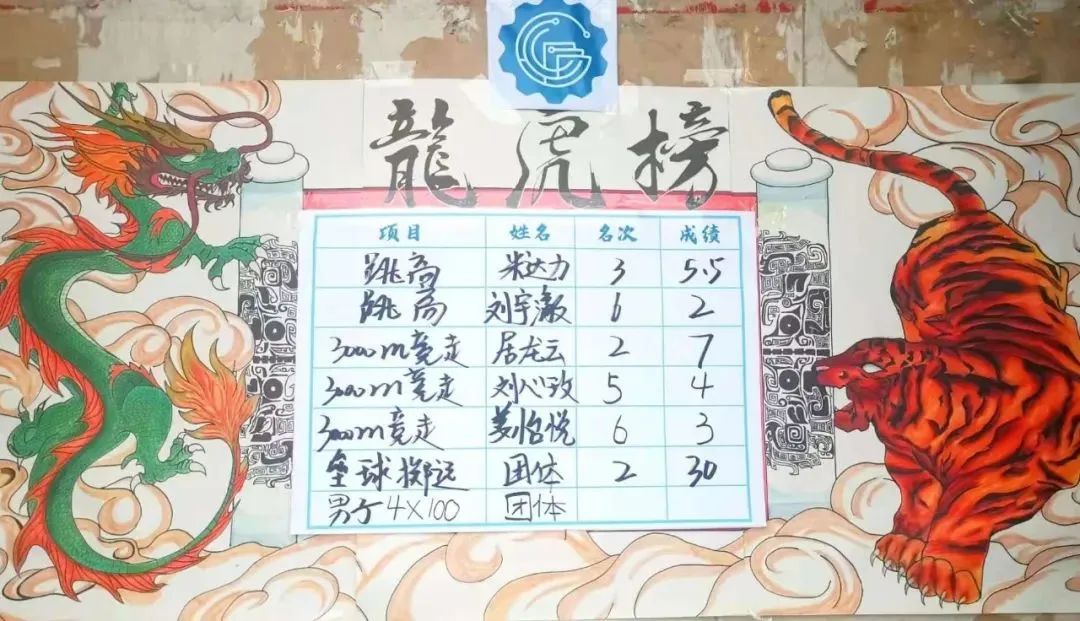 龍虎榜
项目 姓名 名次 成绩
跳高 米达力 3 5.5
跳高 刘宇澈 6 2
3000m竞走 居龙云 2 7
3000m竞走 刘心玫 5 4
3000m竞走 姜怡悦 6 3
垒球掷远 团体 2 30
男子4×100 团体